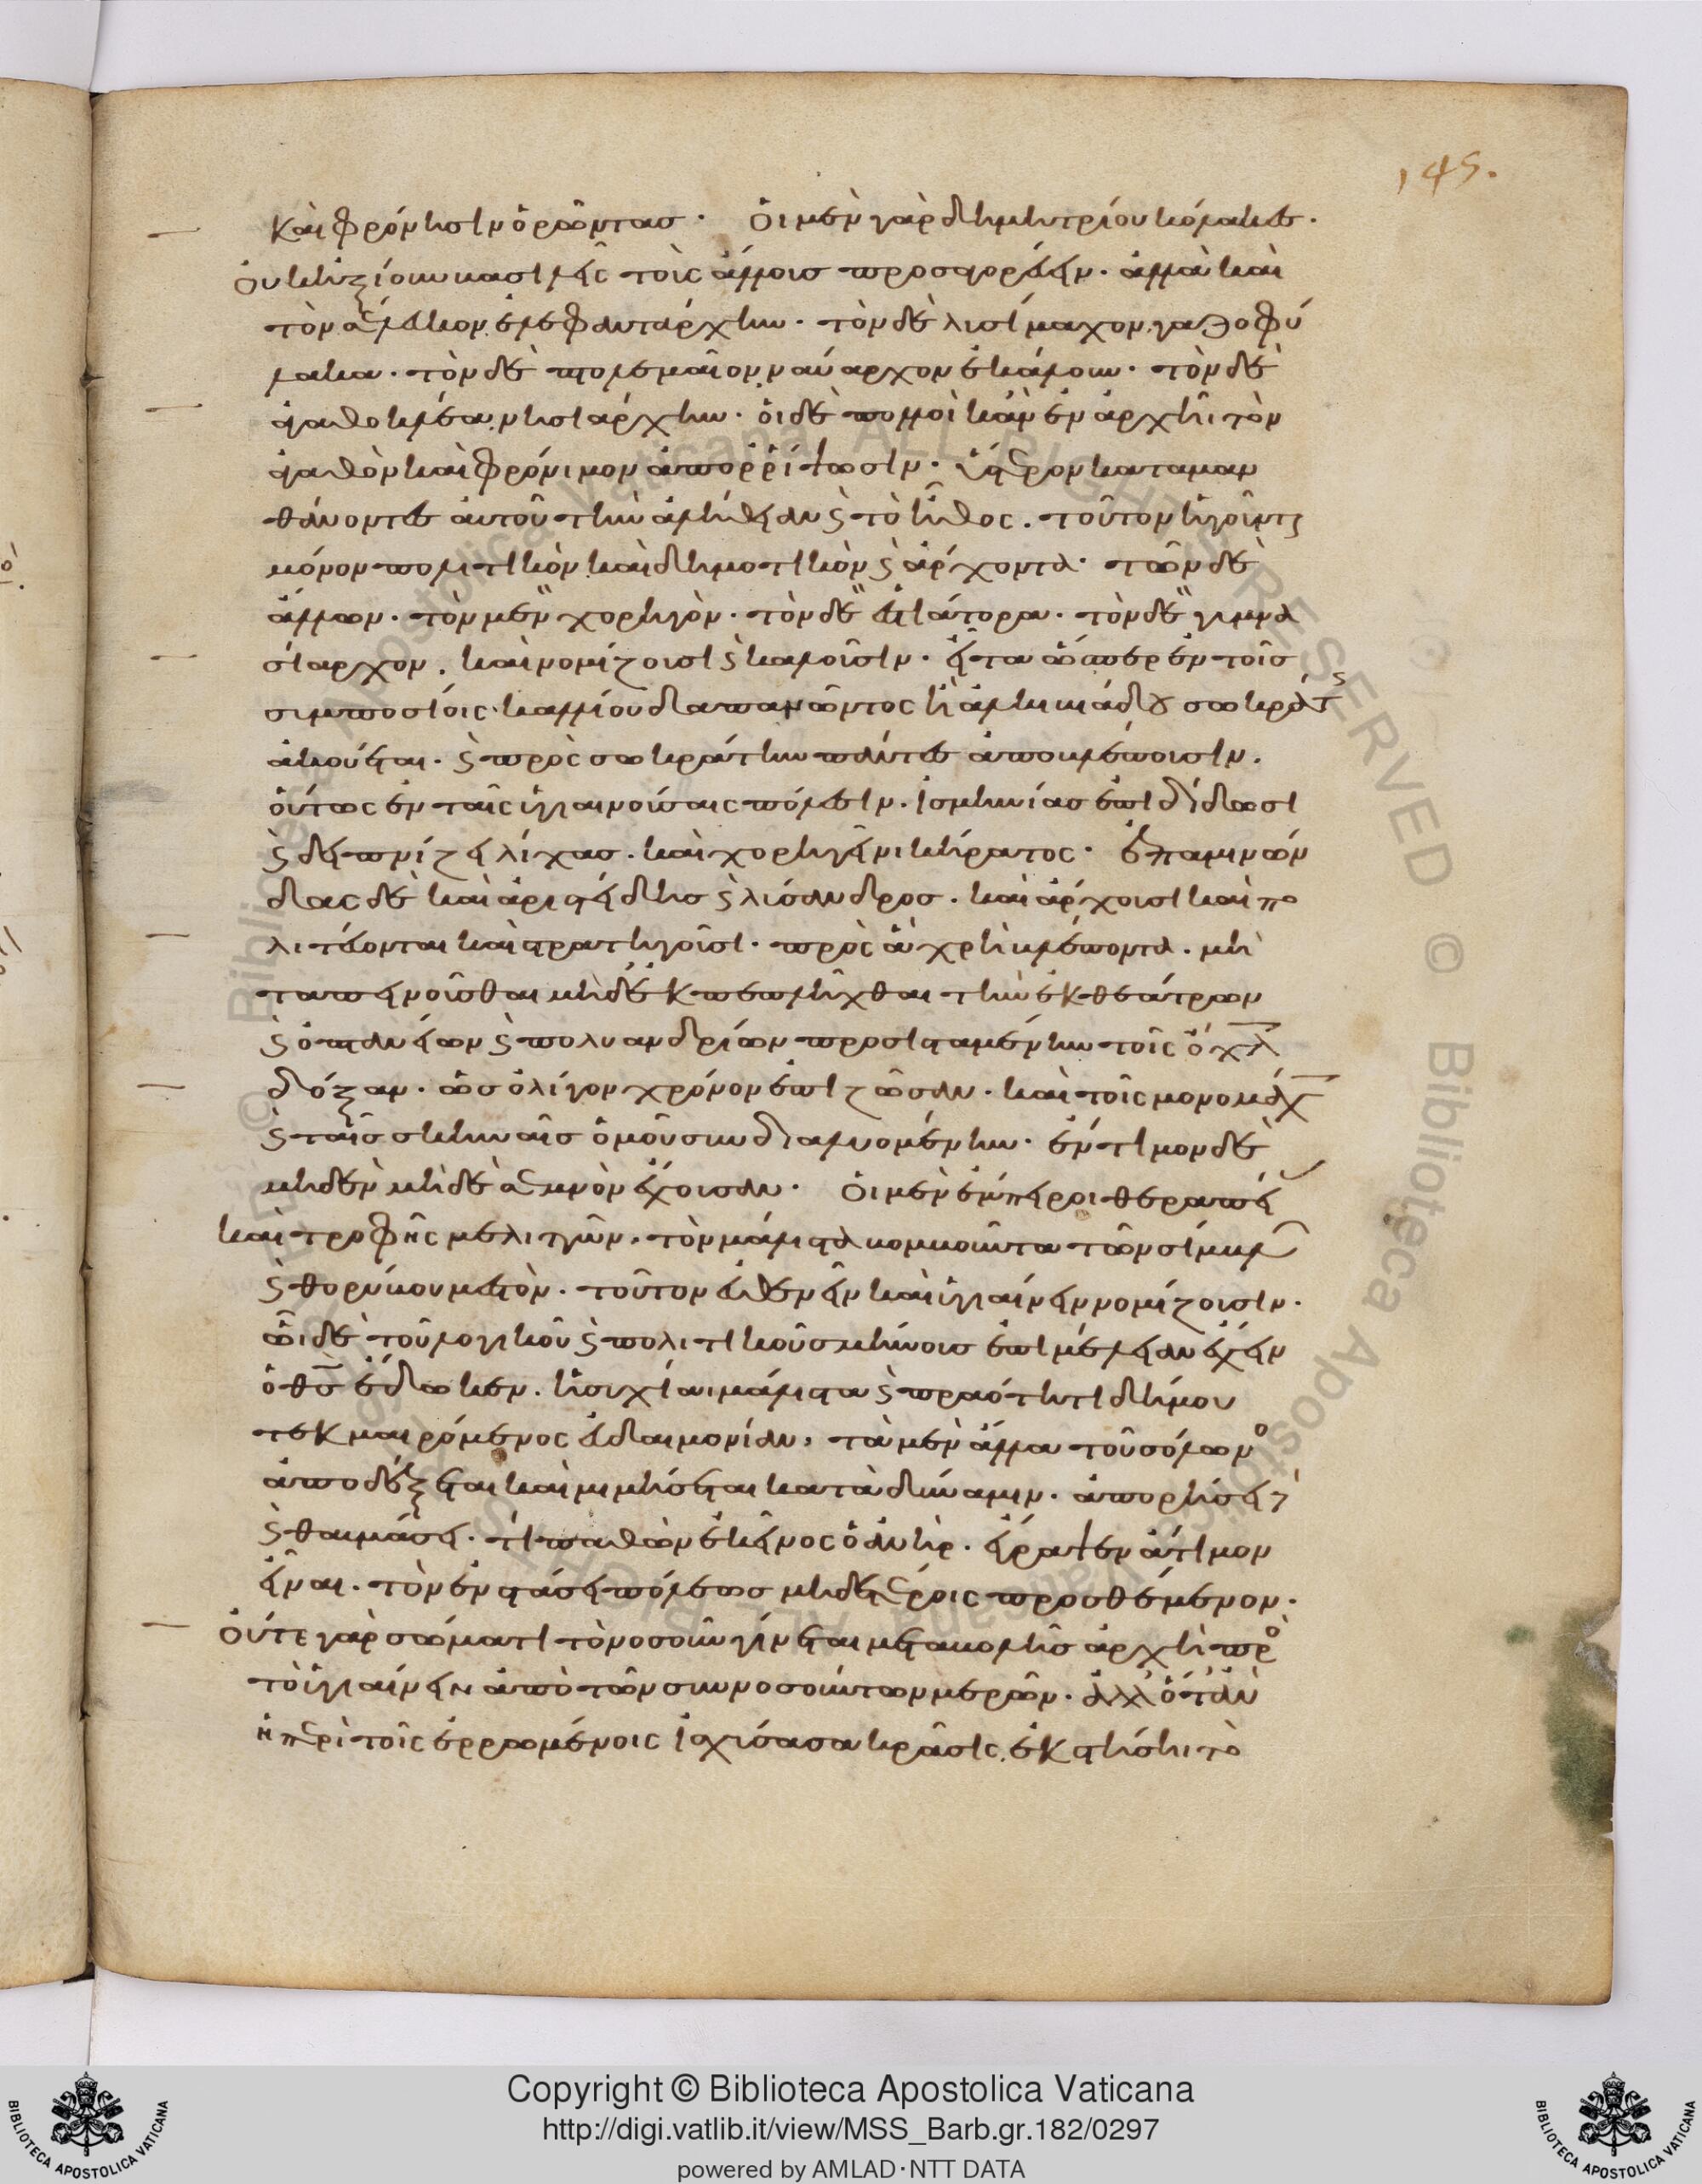 καὶ φρόνησιν ὁρῶντας. Οἱ μὲν γὰρ δημητρίου κόλακες.
οὐκ ἠξίουν βασιλεῖς τοὺς ἄλλους προσαγορεύειν. ἀλλὰ καὶ
τὸν σέλευκον ἐλεφαντάρχην. τὸν δὲ λυσίμαχον γαζοφύ
λακα. τὸν δὲ πτολεμαῖον ναύαρχον ἐκάλουν. τὸν δὲ
ἀγαθοκλέα νησιάρχην. οἱ δὲ πολλοὶ κἂν ἐν ἀρχῆι τὸν
ἀγαθὸν καὶ φρόνιμον ἀπορρίψωσιν. ὕστερον καταμαν
θάνοντες αὐτοῦ τὴν ἀλήθειαν καὶ τὸ ἦθος. τοῦτον ἡγοῦνται
μόνον πολιτικὸν καὶ δημοτικὸν καὶ ἄρχοντα. τῶν δὲ
ἄλλων. τὸν μὲν χορηγὸν. τὸν δὲ ἑστιάτορα. τὸν δὲ γυμνα
σίαρχον. καὶ νομίζουσι καὶ καλοῦσιν. εἶτα ὥσπερ ἐν τοῖς
συμποσίοις καλλίου δαπανῶντος ἢ ἀλκιβιάδου σωκράτης
ἀκούεται. καὶ πρὸς σωκράτην πάντες ἀποβλέπουσιν.
οὕτως ἐν ταῖς ὑγιαινούσαις πόλεσιν. ἰσμηνίας ἐπιδίδωσι
καὶ δειπνίζει λίχας. καὶ χορηγεῖ νικήρατος. ἐπαμινών
δας δὲ καὶ ἀριστείδης καὶ λύσανδρος. καὶ ἄρχουσι καὶ πο
λιτεύονται καὶ στρατηγοῦσι. πρὸς ἃ χρὴ βλέποντα. μὴ
ταπεινοῦσθαι μηδὲ ἐκπεπλῆχθαι τὴν ἐκ θεάτρων
καὶ ὀπτανείων καὶ πολυανδρίων προσισταμένην τοῖς ὄχλοις
δόξαν. ὡς ὀλίγον χρόνον ἐπιζῶσαν. καὶ τοῖς μονομάχοις
καὶ ταῖς σκηναῖς ὁμοῦ συνδιαλυομένην. ἔντιμον δὲ
μηδὲν μηδὲ σεμνὸν ἔχουσαν. Οἱ μὲν ἔμπειροι θεραπείας
καὶ τροφῆς μελιττῶν. τὸν μάλιστα βομβοῦντα τῶν σίμβλων
καὶ θορύβου μεστὸν. τοῦτον εὐθενεῖν καὶ ὑγιαίνειν νομίζουσιν.
ὧι δὲ τοῦ λογικοῦ καὶ πολιτικοῦ σμήνους ἐπιμέλειαν ἔχειν
ὁ θεὸς ἔδωκεν. ἡσυχίαι μάλιστα καὶ πραότητι δήμου
τεκμαιρόμενος εὐδαιμονίαν, τὰ μὲν ἄλλα τοῦ σόλωνος
ἀποδέξεται καὶ μιμήσεται κατὰ δύναμιν. ἀπορήσει δὲ
καὶ θαυμάσει. τί παθὼν ἐκεῖνος ὁ ἀνὴρ. ἔγραψεν ἄτιμον
εἶναι. τὸν ἐν στάσει πόλεως μηδετέροις προσθέμενον.
Οὔτε γὰρ σώματι τὸ νοσοῦν γίνεται μεταβολῆς ἀρχὴ πρὸς
τὸ ὑγιαίνειν ἀπὸ τῶν συννοσούντων μερῶν. ἀλλ' ὅταν
ἡ περὶ τοῖς ἐρρωμένοις ἰσχύσασα κρᾶσις. ἐκστήσηι τὸ
145.
Copyright © Biblioteca Apostolica Vaticana
http://digi.vatlib.it/view/MSS_Barb.gr.182/0297
powered by AMLAD·NTT DATA
BIBLIOTECA APOSTOLICA VATICANA
BIBLIOTECA APOSTOLICA VATICANA